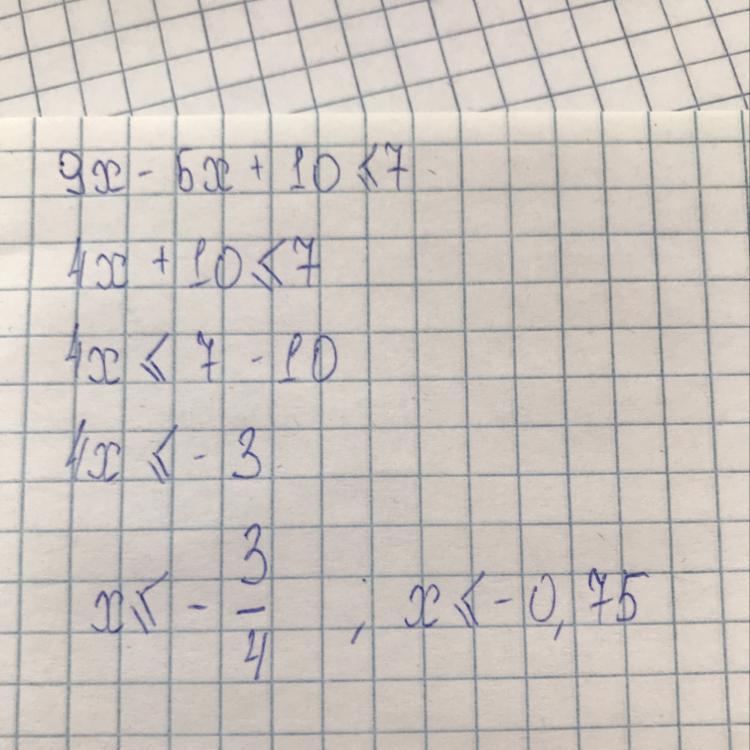 9x - 5x + 10 ⩽ 7
4x + 10 ⩽ 7
4x ⩽ 7 - 10
4x ⩽ - 3
x ⩽ - 3/4 ; x ⩽ - 0,75